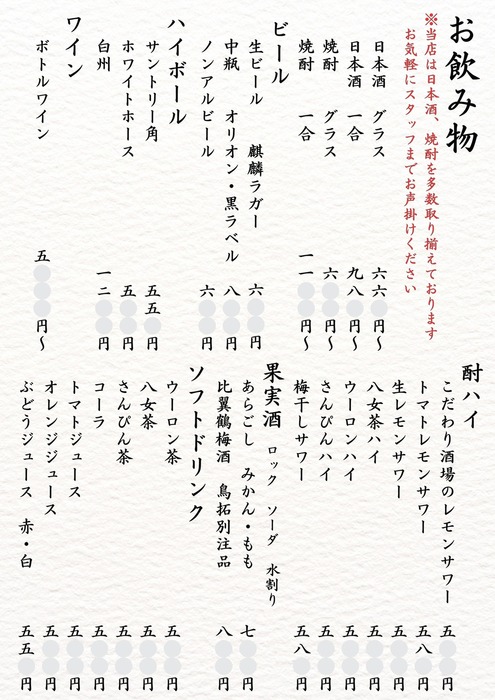 お飲み物
※当店は日本酒、焼酎を多数取り揃えております
お気軽にスタッフまでお声掛けください
日本酒 グラス 六六〇円〜
日本酒 一合 九八〇円〜
焼酎 グラス 六〇〇円〜
焼酎 一合 一一〇〇円〜
ビール
生ビール 麒麟ラガー 六〇〇円
中瓶 オリオン・黒ラベル 八〇〇円
ノンアルビール 六〇〇円
ハイボール
サントリー角 五五〇円
ホワイトホース 五〇〇円
白州 一二〇〇円
ワイン
ボトルワイン 五〇〇〇円〜
酎ハイ
こだわり酒場のレモンサワー 五〇〇円
トマトレモンサワー 五八〇円
生レモンサワー 五〇〇円
八女茶ハイ 五〇〇円
ウーロンハイ 五〇〇円
さんぴんハイ 五〇〇円
梅干しサワー 五八〇円
果実酒 ロック ソーダ 水割り
あらごし みかん・もも 七〇〇円
比翼鶴梅酒 鳥拓別注品 八〇〇円
ソフトドリンク
ウーロン茶 五〇〇円
八女茶 五〇〇円
さんぴん茶 五〇〇円
コーラ 五〇〇円
トマトジュース 五〇〇円
オレンジジュース 五〇〇円
ぶどうジュース 赤・白 五五〇円